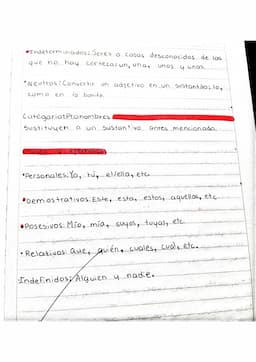 •Indeterminados: Seres o cosas desconocidos de las
que no hay certeza: un, una, unos y unas.
•Neutros: Convertir un adjetivo en un sustantivo: lo,
sumo en lo bonito.
Categoria: Pronombres
Sustituyen a un sustantivo antes mencionado.
•Personales: Yo, tú, el/ella, etc.
•Demostrativos: Este, esta, estos, aquellos, etc.
•Posesivos: Mío, mía, suyos, tuyas, etc.
•Relativos: Que, quién, cuales, cual, etc.
Indefinidos: Alguien y nadie.